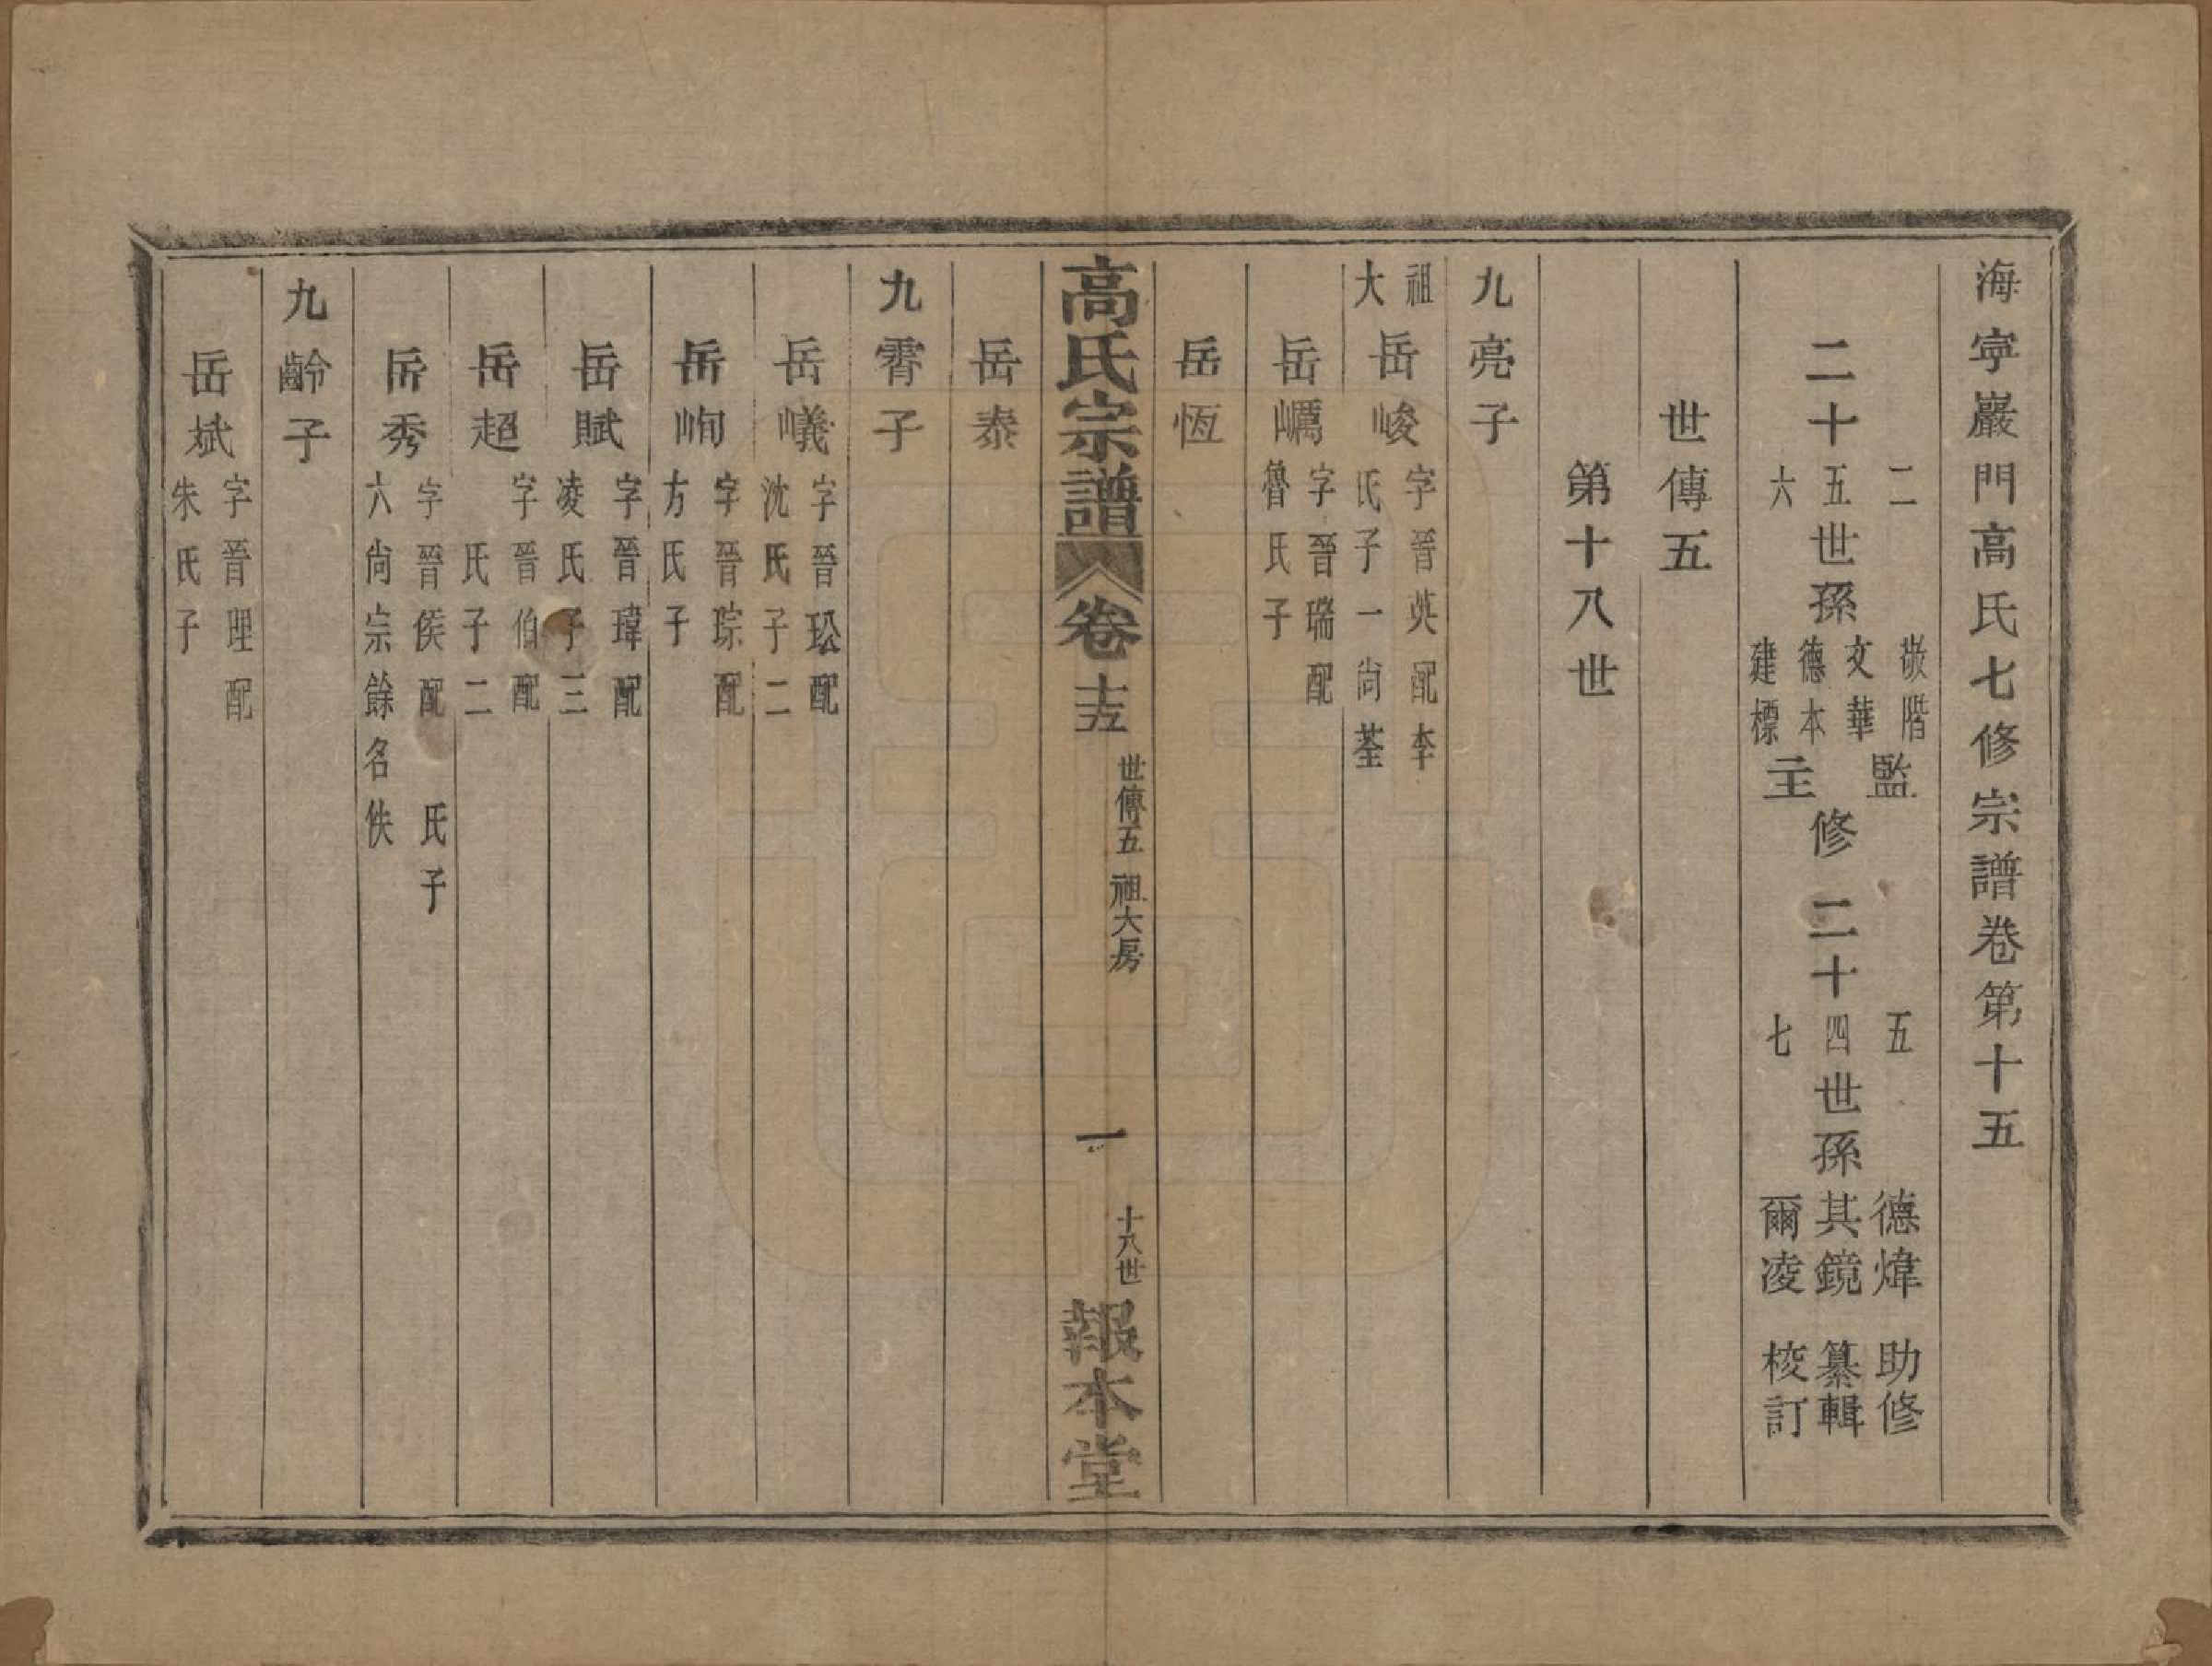 海寧巖門高氏七修宗譜卷第十五
二十二五六世孫敬階文華德本建標監主修二十五四七世孫德煒其鏡爾凌助修纂輯校訂
世傳五
第十八世
九亮子
祖大
岳峻字晉英配李氏子一尚荃
岳巁字晉瑞配魯氏子
岳恆
高氏宗譜 卷十五 世傳五 祖大房 一 十八世 報本堂
岳泰
九霄子
岳嶬字晉玜配沈氏子二
岳峋字晉琮配方氏子
岳賦字晉瑋配凌氏子三
岳超字晉伯配 氏子二
岳秀字晉侯配 氏子六尚宗餘名佚
九齡子
岳斌字晉理配朱氏子